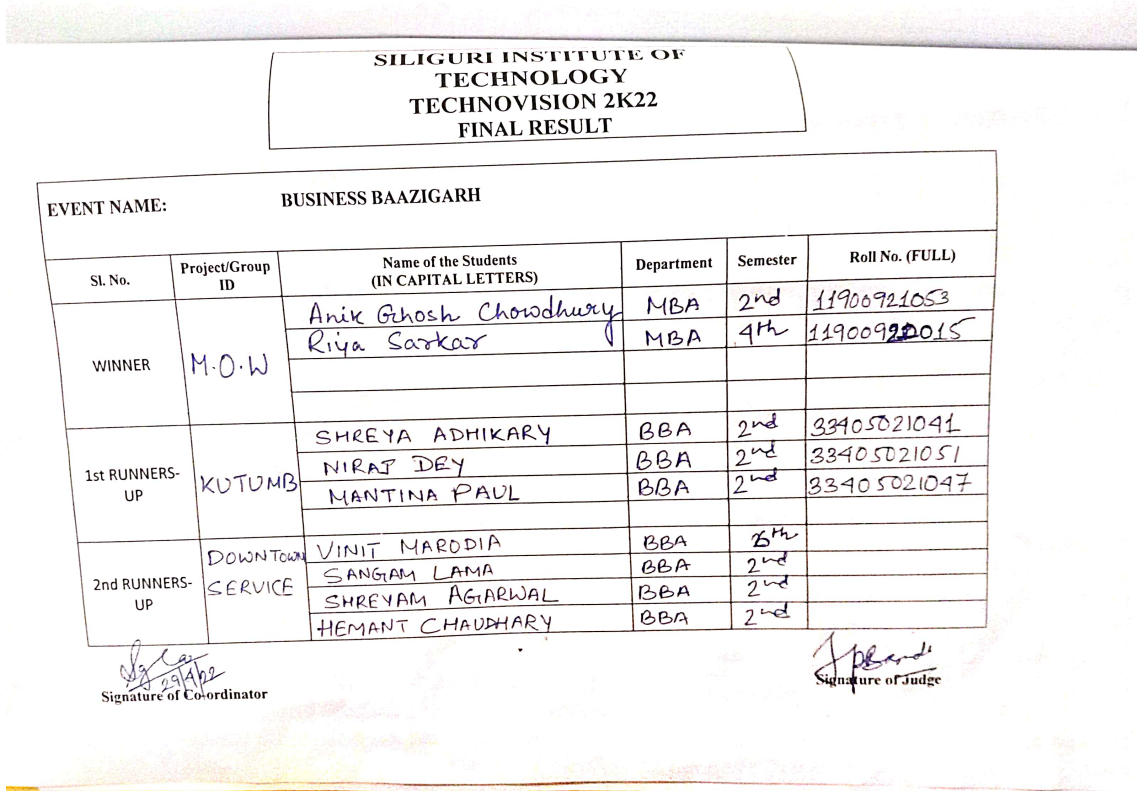 SILIGURI INSTITUTE OF
TECHNOLOGY
TECHNOVISION 2K22
FINAL RESULT
EVENT NAME: BUSINESS BAAZIGARH
Sl. No. Project/Group ID Name of the Students (IN CAPITAL LETTERS) Department Semester Roll No. (FULL)
WINNER M.O.W
Anik Ghosh Chowdhury MBA 2nd 11900921053
Riya Sarkar MBA 4th
1st RUNNERS-UP KUTUMB
SHREYA ADHIKARY BBA 2nd 33405021041
NIRAJ DEY BBA 2nd 33405021051
MANTINA PAUL BBA 2nd 33405021047
2nd RUNNERS-UP DOWNTOWN SERVICE
VINIT MARODIA BBA
SANGAM LAMA BBA 2nd
SHREYAM AGARWAL BBA 2nd
HEMANT CHAUDHARY BBA 2nd
29/4/22
Signature of Co-ordinator
Signature of Judge